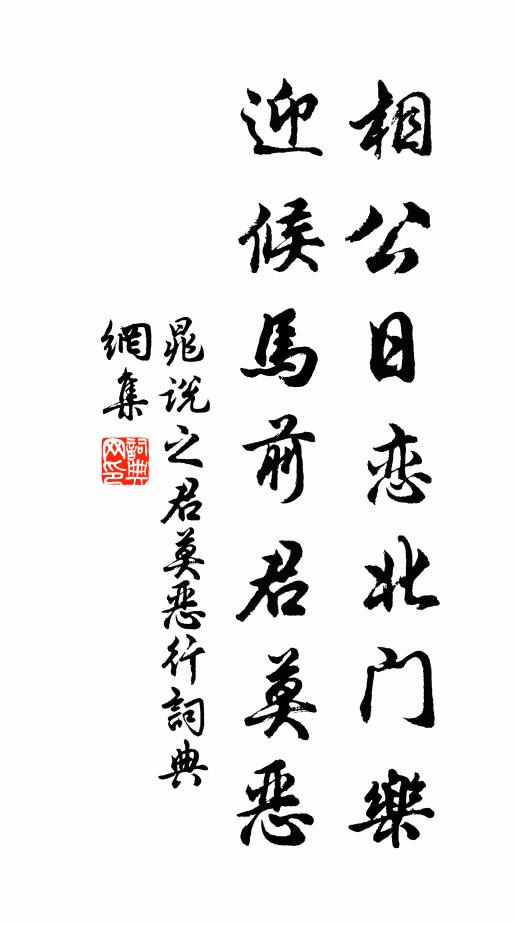 相公日恋北门樂
迎候馬前君莫恶
晁说之君莫恶行詞典
網集
詞典网印